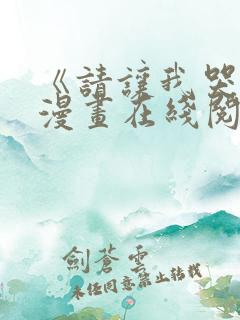 《請讓我哭
漫畫在綫閱
劍蒼雲
未經同意禁止轉載